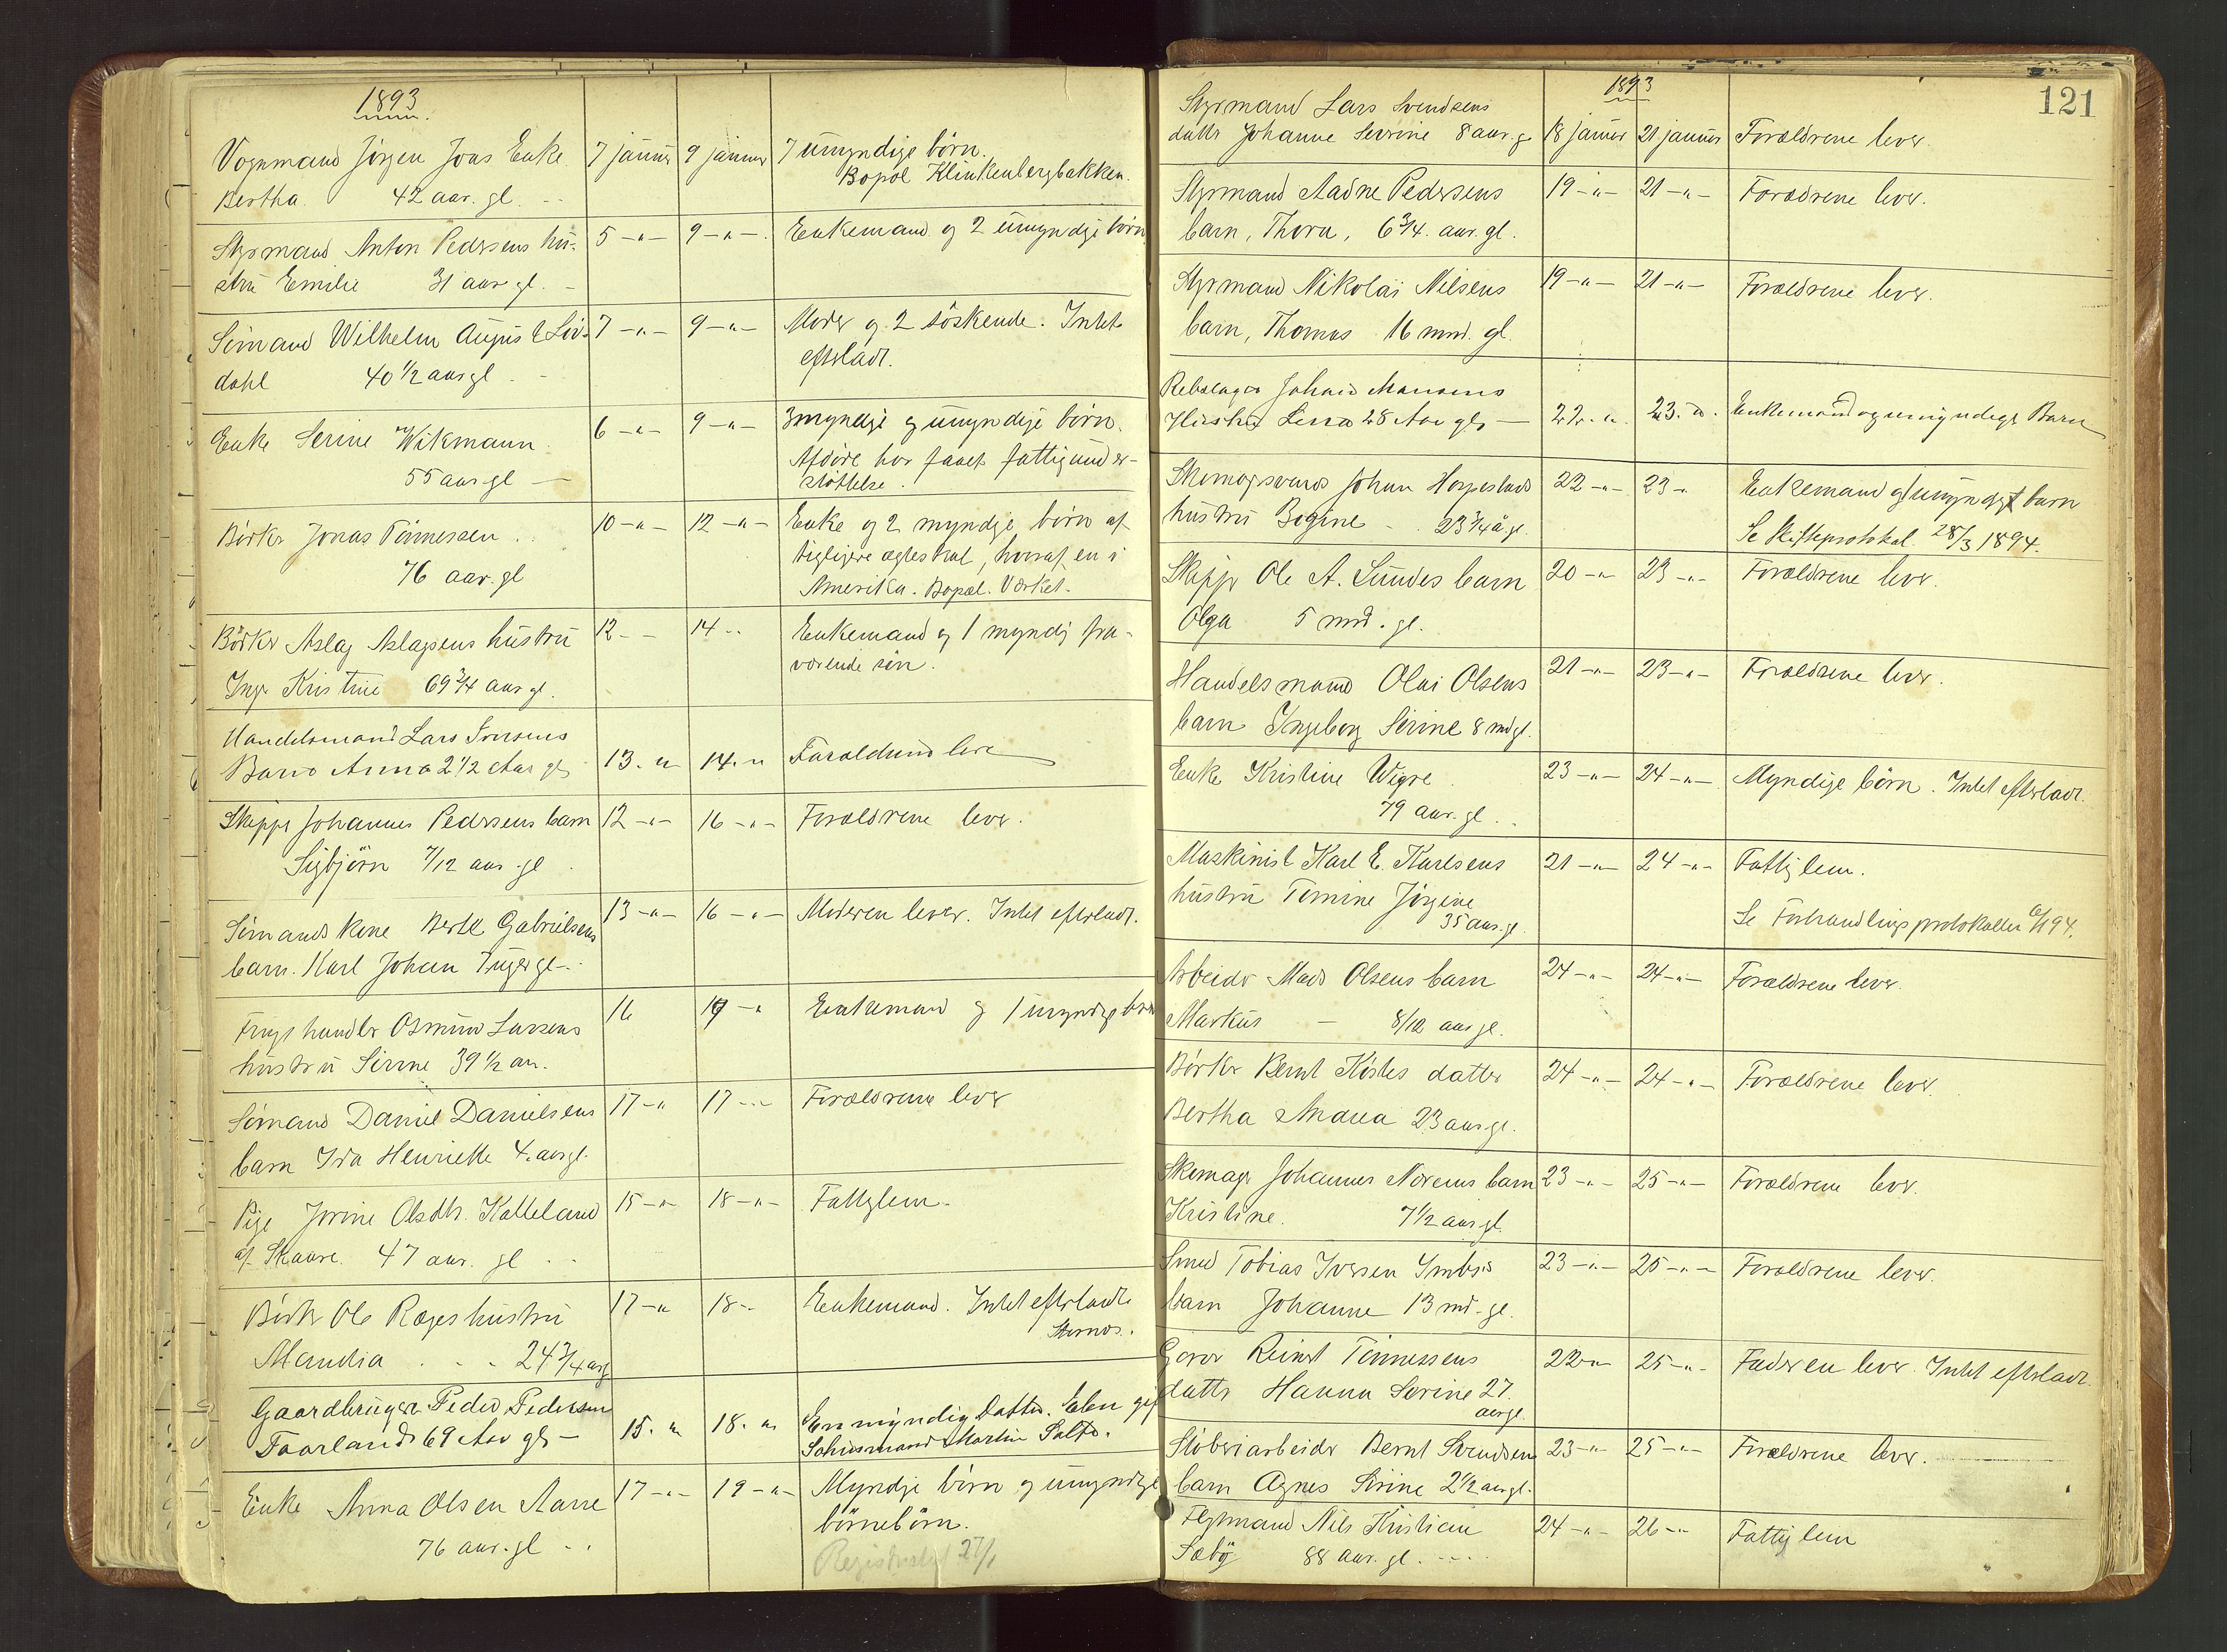 1893
Vognmand Jørgen Joas Enke 7 januar 9 januar 7 umyndige børn.
Bopæl Klinkenbergbakken.
Bertha 42 aar. gl.
Styrmand Anton Pedersens hu- 5 -"- 9 -"- Enkemand og 2 umyndige børn
stru Emilie 31 aar gl.
Sømand Wilhelm August Løv- 7 -"- 9 -"- Moder og 2 söskende. Intet
dahl 40 1/2 aar gl efterladt.
Enke Serine Wikmann 6 -"- 9 -"- 3 myndige og umyndige børn.
55 aar gl Afdöde har faaet fattigunder-
støttelse.
Bødker Jonas Tönnessen 10 -"- 12 -"- Enke og 2 myndige børn af
76 aar. gl tidligere ægteskab, hvoraf en i
Amerika. Bopæl. Værket.
Bödker Aslag Aslagsens hustru 12 - - 14 - - Enkemand og 1 myndig fra-
Inger Kristine 69 3/4 aar gl. værende søn.
Handelsmand Lars Iversens
Barn Anna 2 1/2 Aar gl 13. " 14. " Forældrene leve
Skipper Johannes Pedersens barn 12 -"- 16 -"- Forældrene lever.
Sigbjörn 7/12 aar gl
Sömands kone Berte Gabrielsens 13 -"- 16 -"- Moderen lever. Intet efterladt.
barn. Karl Johan
Osmund Larsens 16 17 -" Enkemand og 1 umyndige børn
hustru Serine 39 1/2 aar.
Sømand Daniel Danielsens 17 -" 17 - - Forældrene lever
barn Ida Henriette 4. aar gl.
Pige Jorine Olsdtr. Kalleland 15 -" 18 -"- Fattiglem.
af Skaare. 47 aar. gl
Bødker Ole Rages hustru 17 -" 18 - Enkemand. Intet efterladt
Mandia 24 3/4 aar gl
Gaardbruger Peder Pedersen
Faarland 69 Aar gl 15. " 18. " En myndig Datter. Elen gift
Martin Salte.
Enke Anna Olsen Aarre 17 -"- 19 -"- Myndige børn og umyndige
76 aar. gl børnebørn.
27/1
121
1893
Styrmand Lars Svendsens
datter Johanne Severine 8 aar. gl 18 januar 21 januar Forældrene lever.
Styrmand Aadne Pedersens 19 -"- 21 -"- Forældrene lever.
barn, Thora, 6 3/4. aar. gl.
Styrmand Nikolai Nilsens 19 -"- 21 -"- Forældrene lever.
barn, Thomas 16 mnd. gl.
Rebslager Johan Monsens
Hustru Lena 28 Aar gl, 22. ". 23. ". Enkemand og umyndige Barn
Skomagersvend Johan Horpestads 22 -"- 23 -" Enkemand og 1 umyndigt barn
hustru Bogine 23 3/4 å gl. Se Skifteprotokol 28/3 1894.
Skipper Ole A. Sundes barn 20 -" 23 -"- Forældrene lever.
Olga 5 mnd. gl.
Handelsmand Olai Olsens 21 -"- 23 -"- Forældrene lever.
barn Ingeborg Serine 8 md gl.
Enke Kristine Wigre 23 -"- 24 -"- Myndige børn. Intet efterladt.
79 aar. gl.
Maskinist Karl E. Karlsens 21 -"- 24 -"- Fattiglem.
hustru Tomine Jørgine Se Forhandlingsprotokollen 6/1 94.
35 aar. gl
Arbeider Mads Olsens barn 24 -"- 24 -"- Forældrene lever.
Markus 8/12 aar gl.
Bødker Bernt Köstes datter 24 -"- 24 -"- Forældrene lever.
Bertha Maria 23 aar gl.
Skomager Johannes Norems barn 23 -"- 25 -"- Forældrene lever.
Kristine. 7 1/2 aar gl.
Smed Tobias Iversen Imbs's 23 -"- 25 -"- Forældrene lever.
barn Johanne 13 md. gl.
Garver Reinert Tönnessens 22 -"- 25 -"- Faderen lever. Intet efterladt.
datter Hanna Serine 27.
aar gl.
Støberiarbeider Bernt Svendsens 23 -"- 25 -"- Forældrene lever.
barn Agnes Serine 2 1/2 aar gl.
Flytmand Nils Kristian 24 -"- 26 -"- Fattiglem
Sæbø 88 aar. gl.